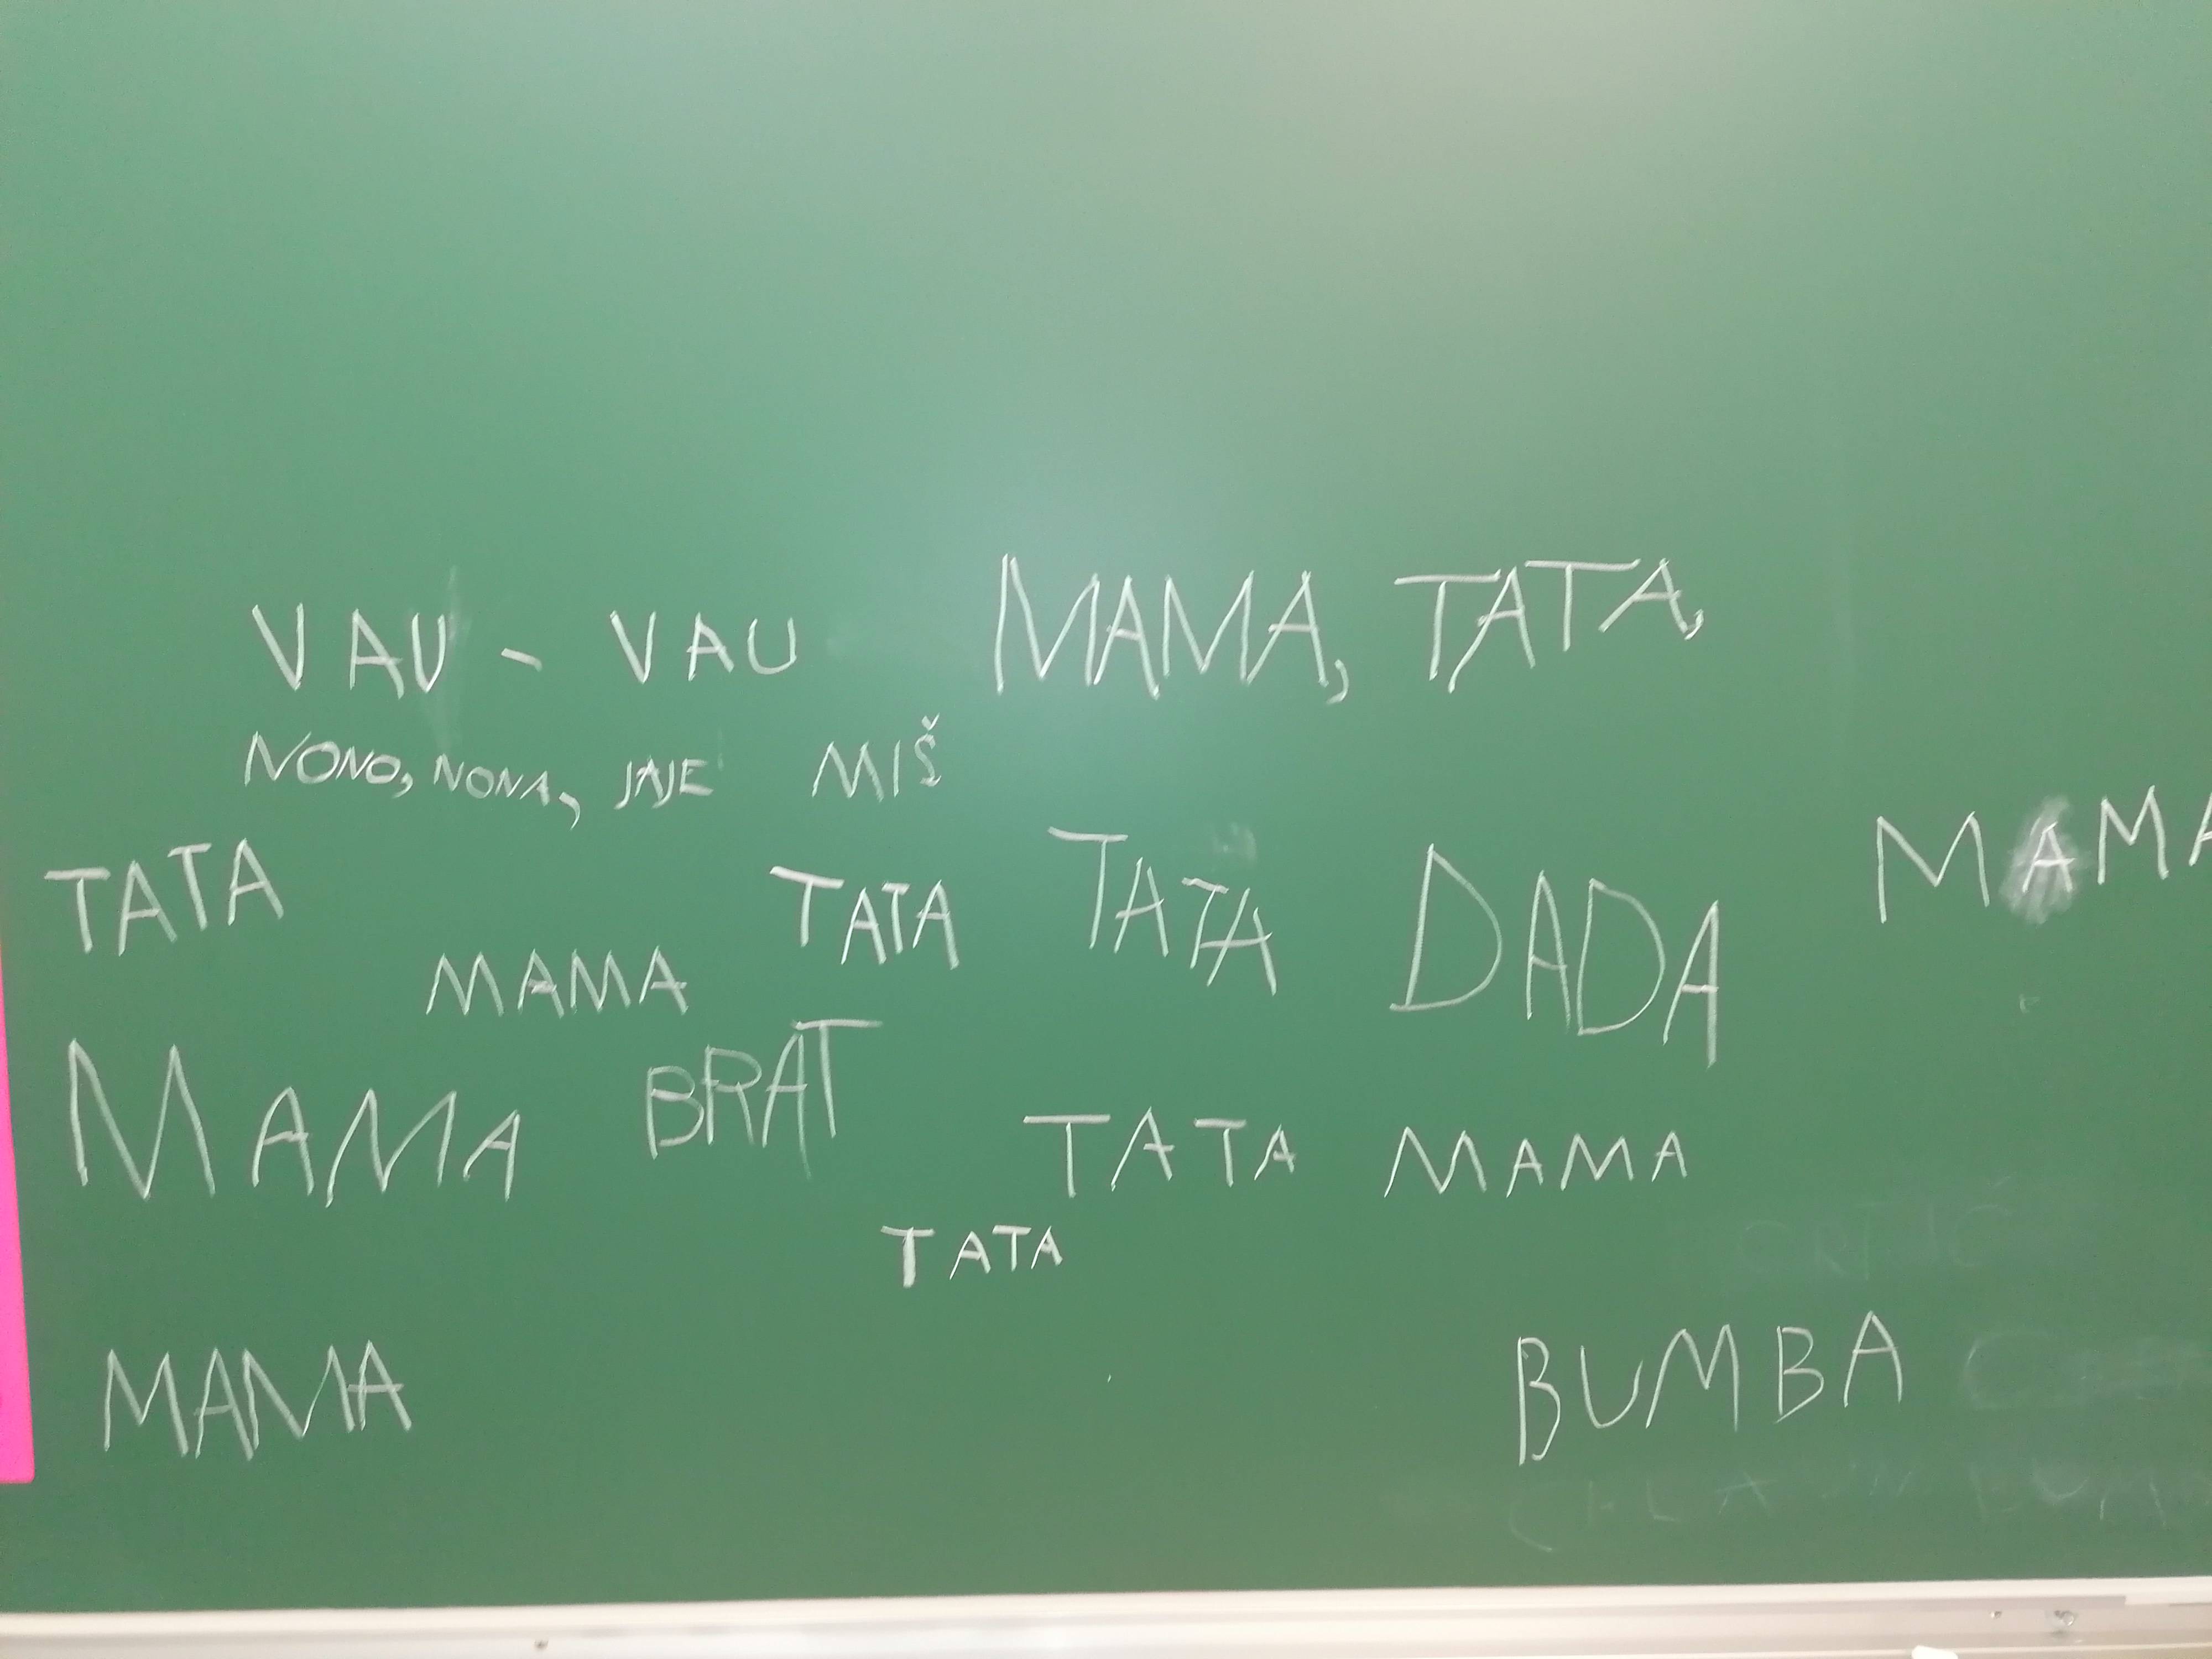 VAU - VAU MAMA, TATA,
NONO, NONA, JAJE MIŠ
TATA TATA TATA DADA MAMA
MAMA
MAMA BRAT TATA MAMA
TATA
MAMA BUMBA